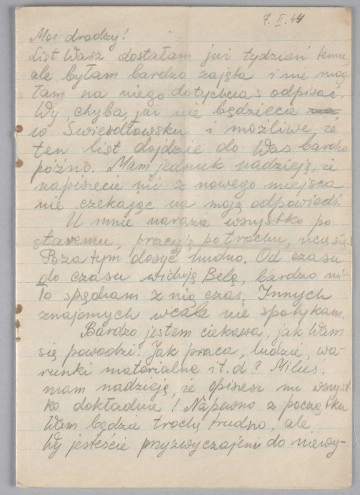 9. II. 44
Moi drodzy!
List Wasz dostałam już tydzień temu
ale byłam bardzo zajęta i nie mog
łam na niego dotychczas odpisać.
Wy chyba już nie będziecie
w Swierdłowsku i możliwe, że
ten list dojdzie do Was bardzo
późno. Mam jednak nadzieję, że
napiszecie mi z nowego miejsca
nie czekając na moją odpowiedź.
U mnie naraze wszystko po
staremu, pracuję potrochu, uczę się.
Poza tym dosyć nudno. Od czasu
do czasu widuję Belę, bardzo mi
ło spędzam z nią czas. Innych
znajomych wcale nie spotykam.
Bardzo jestem ciekawa, jak Wam
się powodzi? Jak praca, ludzie, wa-
runki materialne i t. d.? Miluś,
mam nadzieję, że opiszesz mi wszyst
ko dokładnie! Napewno z początku
Wam będzie trochę trudno, ale
Wy jesteście przyzwyczajeni do niewy-